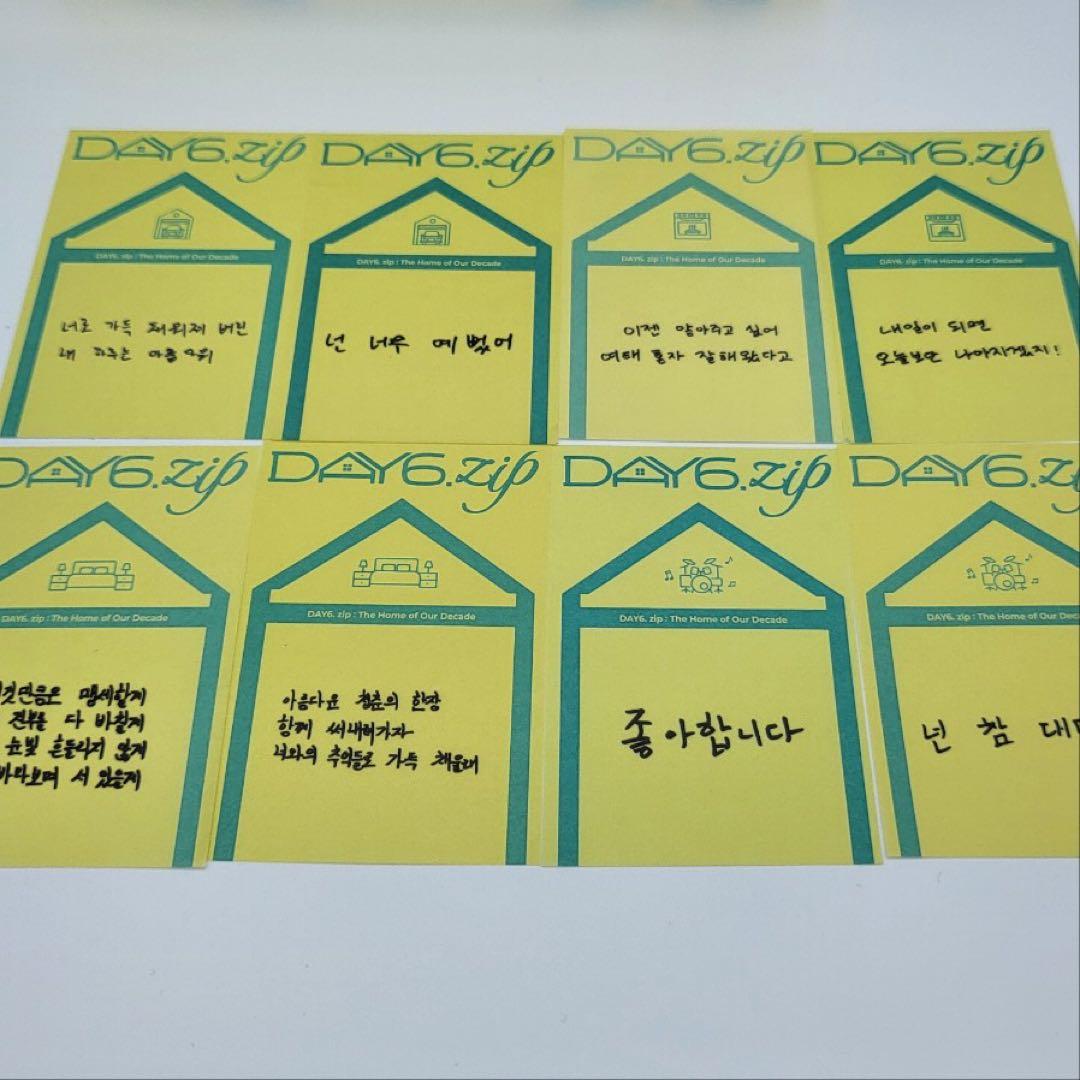 DAY6.zip
DAY6. zip : The Home of Our Decade
너로 가득 채워져 버린
내 하루는 아름다워
DAY6.zip
DAY6. zip : The Home of Our Decade
넌 너무 예뻤어
DAY6.zip
DAY6. zip : The Home of Our Decade
이젠 싶어
여태 혼자 잘해왔다고
DAY6.zip
DAY6. zip : The Home of Our Decade
내일이 되면
오늘보단 나아지겠지!
DAY6.zip
DAY6. zip : The Home of Our Decade
것만큼은 맹세할게
전부를 다 바칠게
눈빛 흔들리지 않게
바라보며 서 있을게
DAY6.zip
DAY6. zip : The Home of Our Decade
아름다운 청춘의 한장
함께 써내려가자
너와의 추억들로 가득 채울래
DAY6.zip
DAY6. zip : The Home of Our Decade
좋아합니다
DAY6.zi
DAY6. zip : The Home of Our Decade
넌 참 대